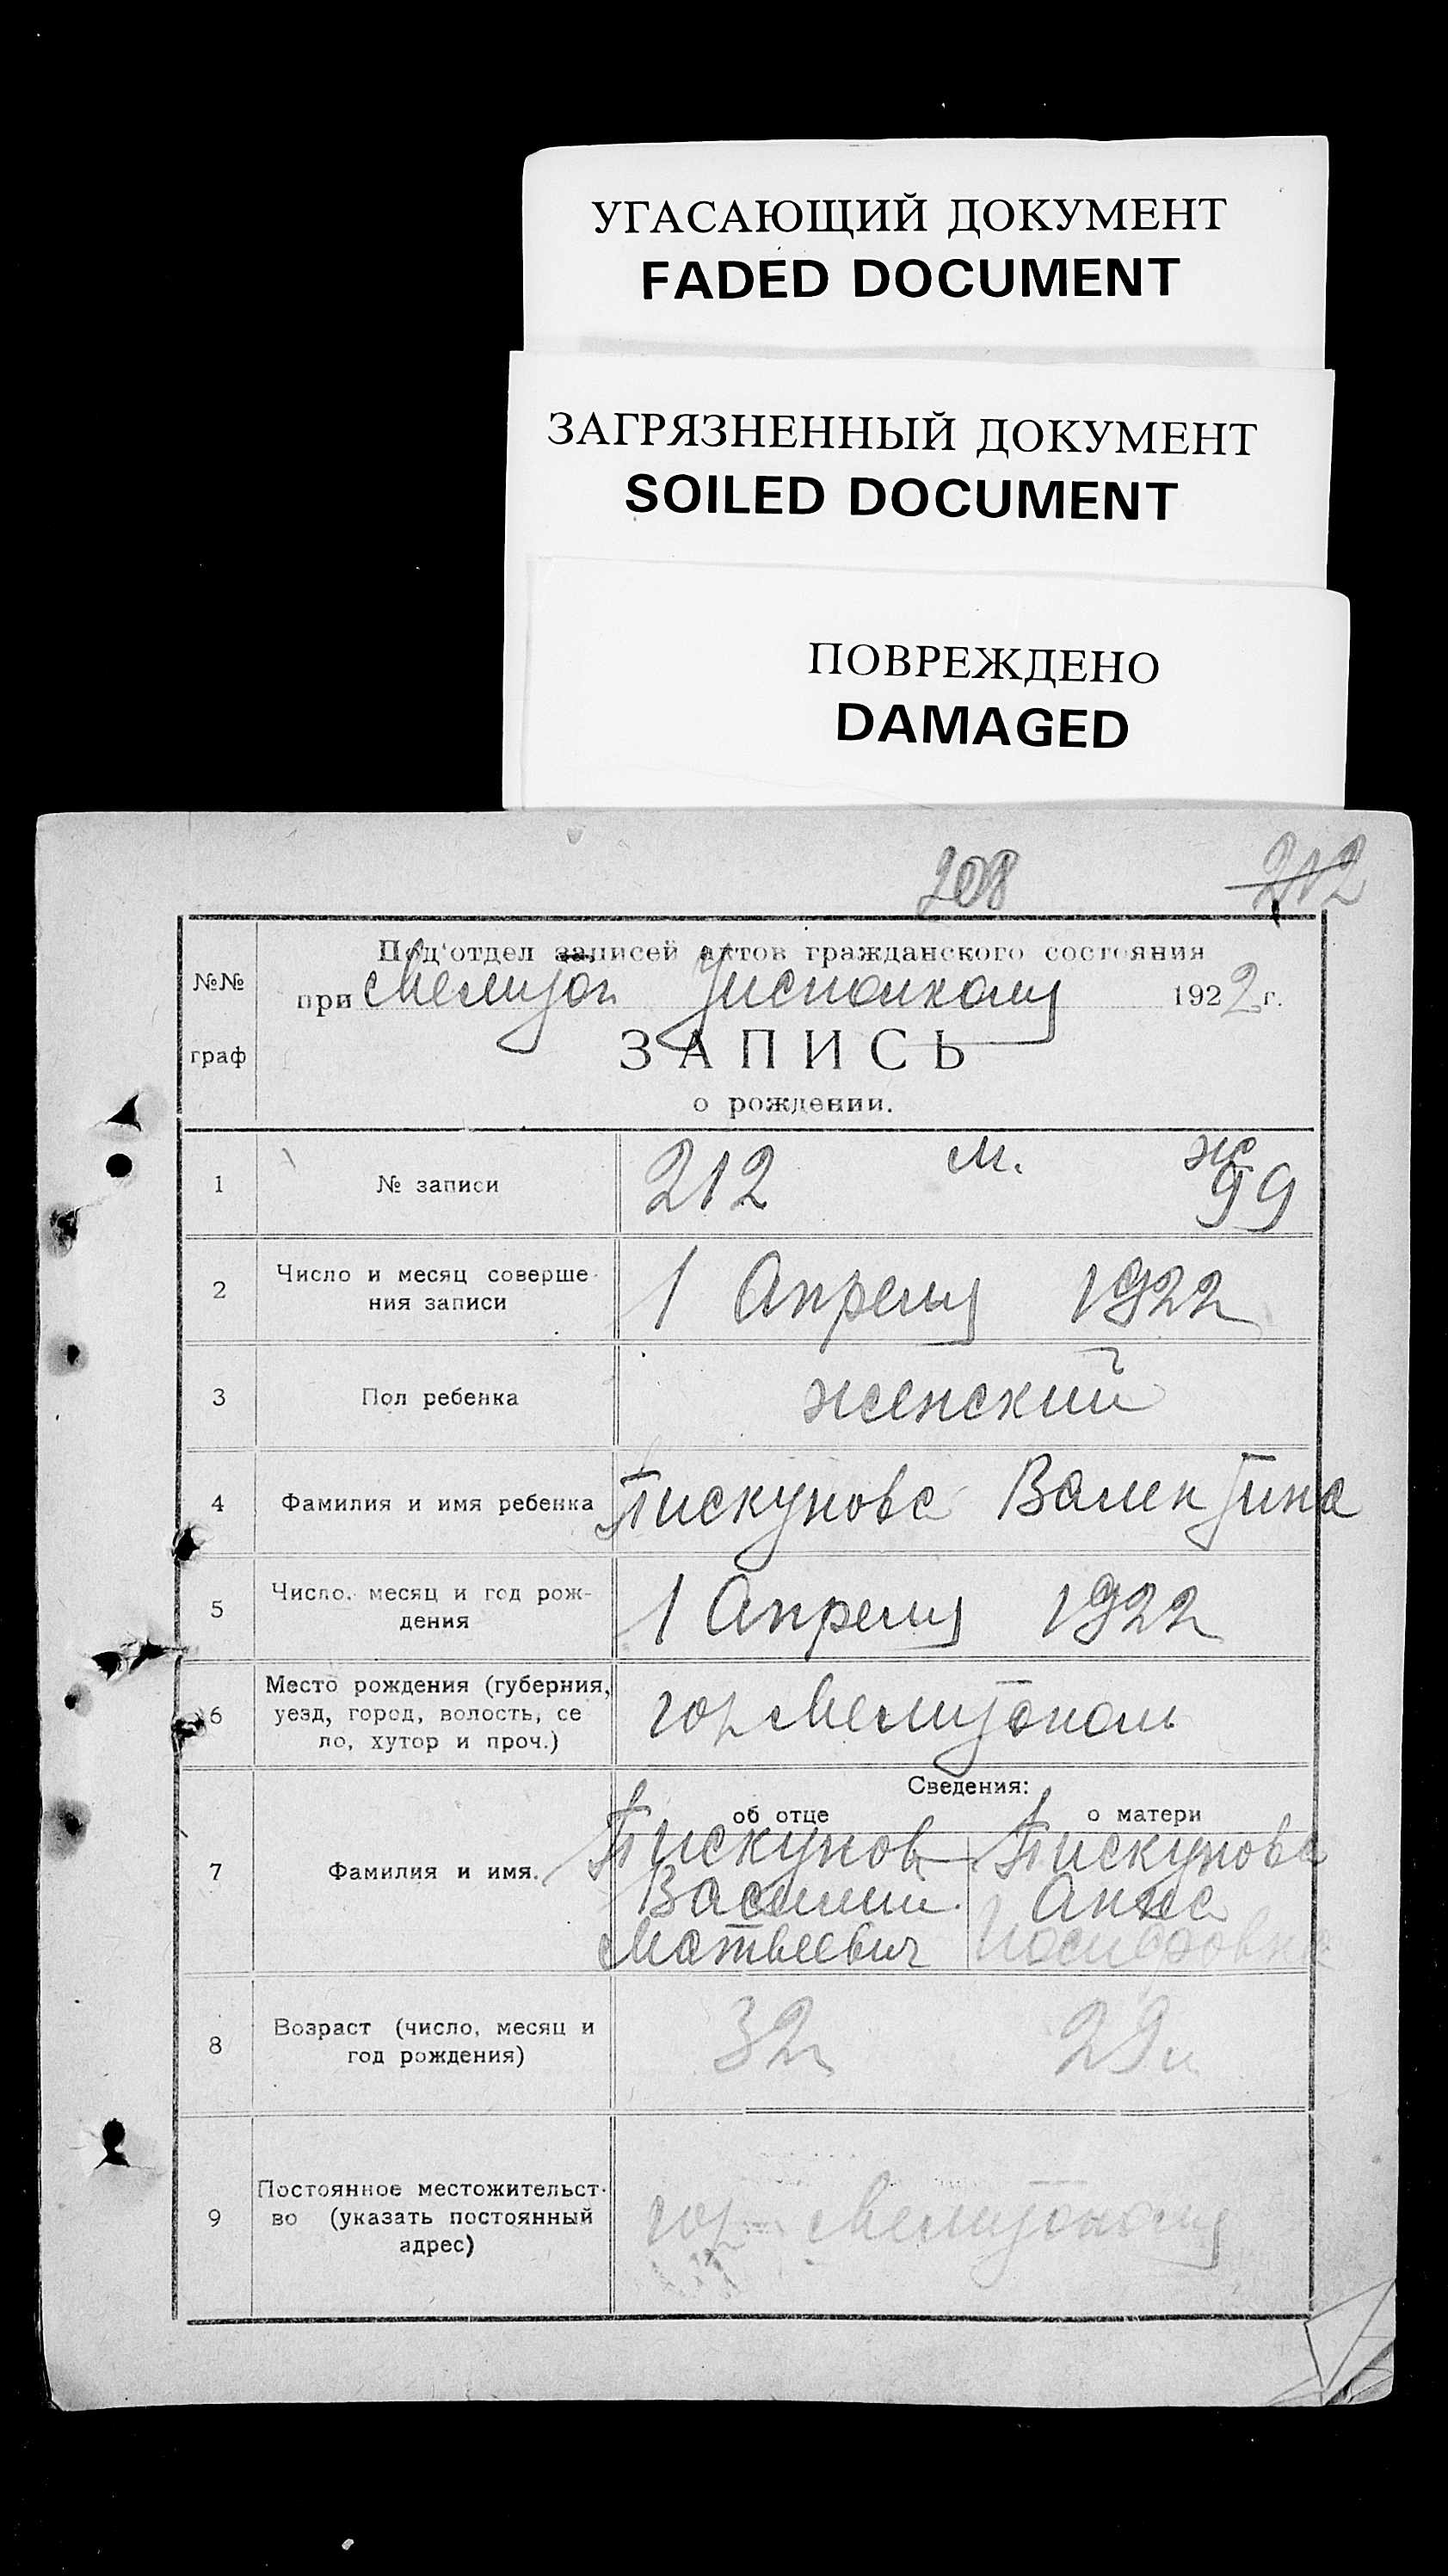 УГАСАЮЩИЙ ДОКУМЕНТ
FADED DOCUMENT
ЗАГРЯЗНЕННЫЙ ДОКУМЕНТ
SOILED DOCUMENT
ПОВРЕЖДЕНО
DAMAGED
208 212
№№ граф
Под'отдел записей актов гражданского состояния
при Мелитоп Исполкому 1922 г.
ЗАПИСЬ
о рождении.
1 № записи 212 м. ж 99
2 Число и месяц соверше-
ния записи 1 Апреля 1922
3 Пол ребенка женский
4 Фамилия и имя ребенка Пискунова Валентина
5 Число, месяц и год рож-
дения 1 Апреля 1922
6 Место рождения (губерния,
уезд, город, волость, се
ло, хутор и проч.) гор Мелитополь
Сведения:
об отце о матери
7 Фамилия и имя. Пискунов Пискунова
Василий Анна
Матвеевич Иосифовна
8 Возраст (число, месяц и
год рождения) 32 29
9 Постоянное местожительст-
во (указать постоянный
адрес) гор Мелитополь